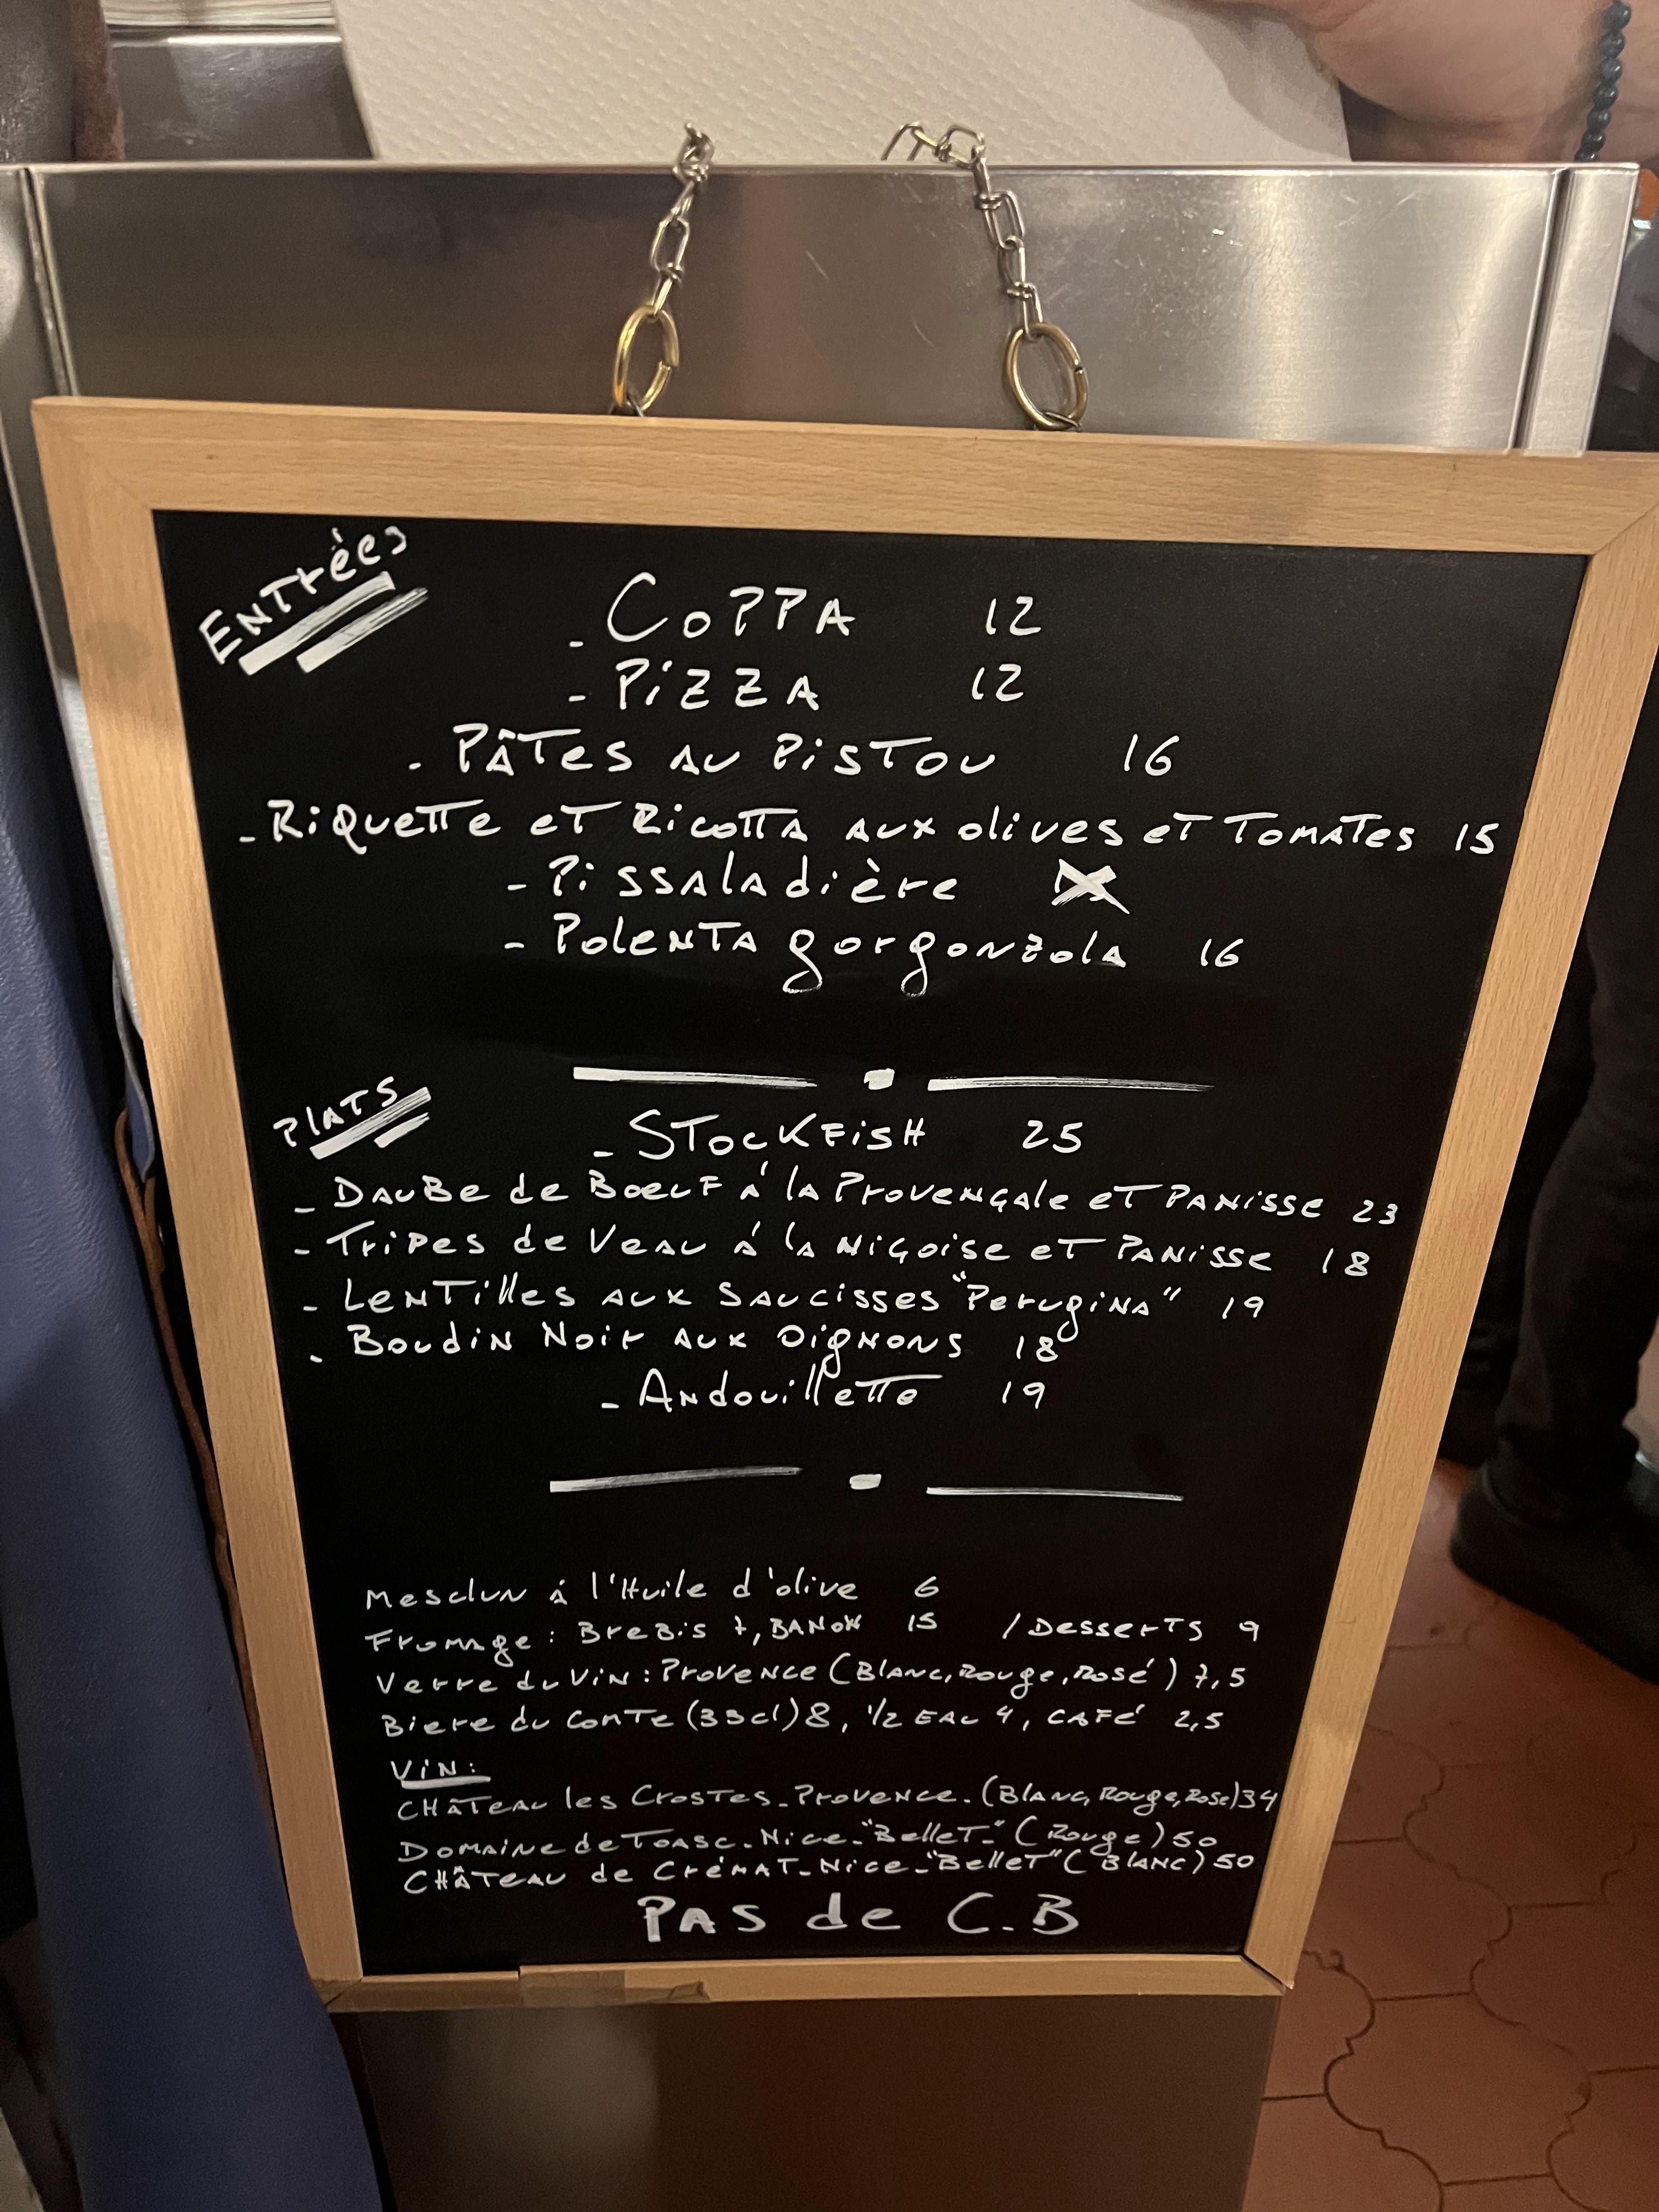 Entrées
- Coppa 12
- Pizza 12
- Pâtes au Pistou 16
- Riquette et Ricotta aux olives et Tomates 15
- Pissaladière X
- Polenta gorgonzola 16
Plats
- Stockfish 25
- Daube de Boeuf á la Provençale et Panisse 23
- Tripes de Veau á la niçoise et Panisse 18
- Lentilles aux Saucisses "Perugina" 19
- Boudin Noir aux Oignons 18
- Andouillette 19
Mesclun á l'Huile d'olive 6
Fromage: Brebis 7, Banon 15 / Desserts 9
Verre du Vin: Provence (Blanc, Rouge, Rosé) 7,5
Biere du Comte (33cl) 8, 1/2 Eau 4, Café 2,5
Vin:
Château les Crostes_Provence. (Blanc, Rouge, Rose) 34
Domaine de Toasc_Nice_"Bellet_" (Rouge) 50
Château de Crémat_Nice_"Bellet" (Blanc) 50
Pas de C.B